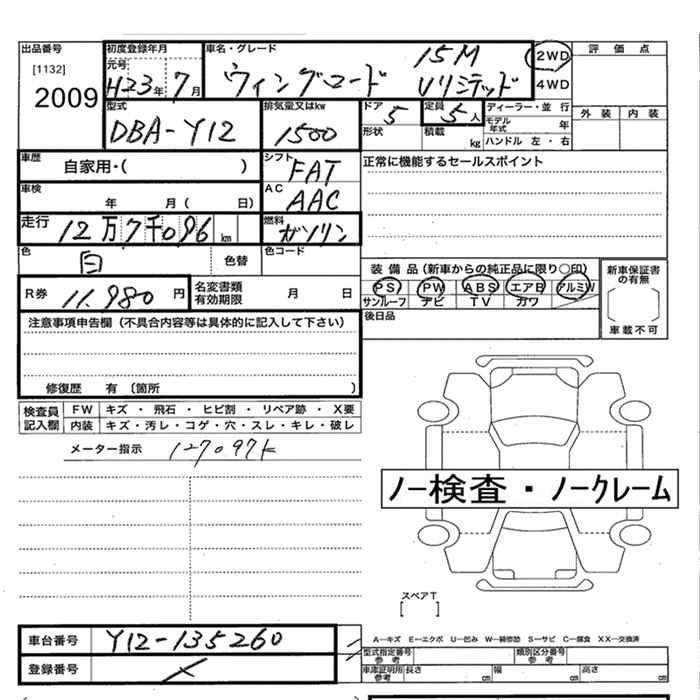 出品番号 [1132] 2009
初度登録年月 元号 H23年 7月
車名・グレード 15M
ウィングロード Vリミテッド
2WD
4WD
評価点
外装 内装
型式 DBA-Y12
排気量又はkw 1500
ドア 5
形状
定員 5人
積載 kg
ディーラー・並行
モデル年式 年
ハンドル 左・右
車歴 自家用・( )
シフト FAT
正常に機能するセールスポイント
車検 年 月( 日)
AC AAC
走行 12万7千096km
燃料 ガソリン
色 白 色替
色コード
装備品(新車からの純正品に限り○印)
PS PW ABS エアB アルミW
サンルーフ ナビ TV カワ
新車保証書の有無
車載不可
R券 11.980円
名変書類有効期限 月 日
後日品
注意事項申告欄(不具合内容等は具体的に記入して下さい)
修復歴 有 〔箇所 )
検査員記入欄
FW キズ・飛石・ヒビ割・リペア跡・X要
内装 キズ・汚レ・コゲ・穴・スレ・キレ・破レ
メーター指示 127097k
ノー検査・ノークレーム
スペアT
[ ]
車台番号 Y12-135260
登録番号
A−キズ E−エクボ U−凹み W−補修跡 S−サビ C−腐食 XX−交換済
型式指定番号 参考
類別区分番号 参考
車庫証明用 参考 長さ cm 幅 cm 高さ cm